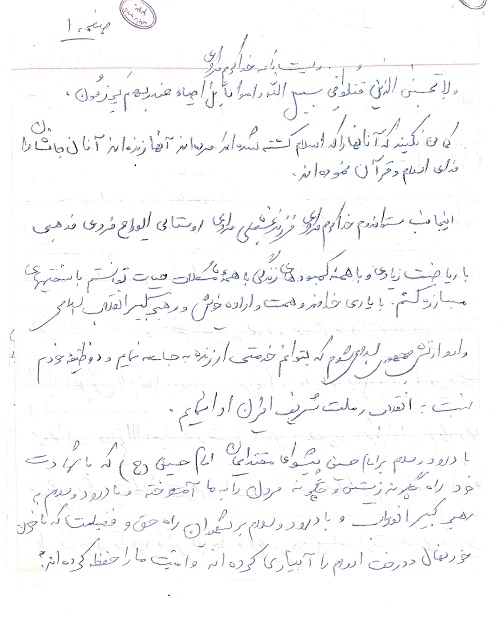 صفحه ۱
وصیت نامه خداکرم مرادی
ولا تحسبن الذین قتلوا فی سبیل الله امواتا بل احیاء عند ربهم یرزقون.
گمان نکنید که آنانکه در راه اسلام کشته شده اند مرده اند آنها زنده اند آنان جانشان را
فدای اسلام و قرآن نموده اند.
اینجانب ستواندوم خداکرم مرادی فرزند مرادی اوستائی فردی مذهبی
با ریاضت زیادی و با همه کمبودهای زندگی با همه مشکلات حیات توانستم با سختیهای
مبارزه کنم. با یاری خداوند و همت و اراده خویش و رهبر کبیر انقلاب اسلامی
وارد ارتش جمهوری اسلامی شوم که بتوانم خدمتی ارزنده به جامعه نمایم و وظیفه خودم
نسبت به انقلاب و ملت شریف ایران ادا نمایم.
با درود و سلام بر امام حسین پیشوای امام حسین (ع) که با شهادت
خود راه چگونه زیستن و چگونه مردن را به ما آموخته و با درود و سلام به
رهبر کبیر انقلاب و با درود و سلام بر شهیدان راه حق و فضیلت که با خون
خود نهال و درخت اسلام را آبیاری کرده اند و امنیت ما را حفظ کرده اند.